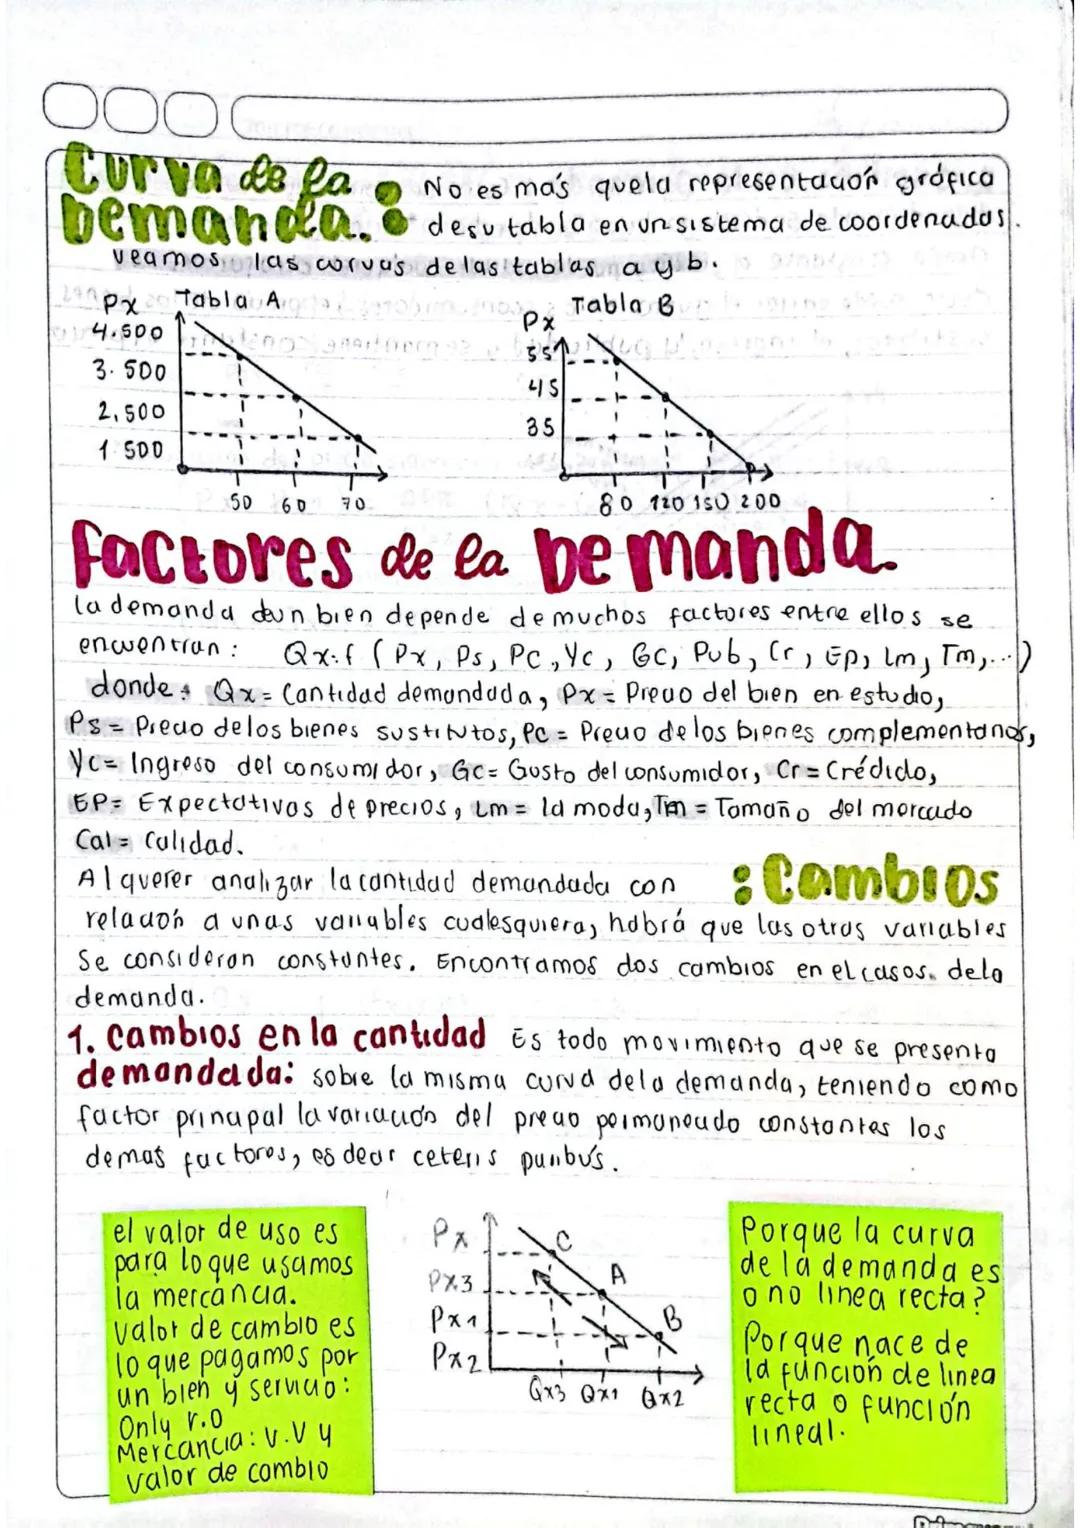 Curva de la
Demanda.: No es más que la representación gráfica
de su tabla en un sistema de coordenadas.
veamos las curvas de las tablas a y b.
Px Tabla A
4.500
3.500
2,500
1 500
50 60 70
Tabla B
Px
55
45
35
80 120 150 200
Factores de la Demanda.
la demanda de un bien depende de muchos factores entre ellos se
encuentran: Qx:f (Px, Ps, Pc, Yc, Gc, Pub, Cr, Ep, Lm, Tm,...)
donde: Qx = Cantidad demandada, Px = Precio del bien en estudio,
Ps = Precio de los bienes sustitutos, Pc = Precio de los bienes complementarios,
Yc = Ingreso del consumidor, Gc = Gusto del consumidor, Cr = Crédido,
EP = Expectativas de precios, Lm = la moda, Tm = Tamaño del mercado
Cal = Calidad.
:Cambios
Al querer analizar la cantidad demandada con
relación a unas variables cualesquiera, habrá que las otras variables
Se consideran constantes. Encontramos dos cambios en el casos. de la
demanda.
1. Cambios en la cantidad Es todo movimiento que se presenta
demandada: sobre la misma curva de la demanda, teniendo como
factor principal la variación del precio permaneciendo constantes los
demás factores, es decir ceteris paribus.
el valor de uso es
para lo que usamos
la mercancia.
Valor de cambio es
lo que pagamos por
un bien y servicio:
Only v.o
Mercancia: v.v y
valor de cambio
Px
Px3
Px1
Px2
C
A
B
Qx3 Qx1 Qx2
Porque la curva
de la demanda es
o no linea recta?
Porque nace de
la función de linea
recta o función
lineal.